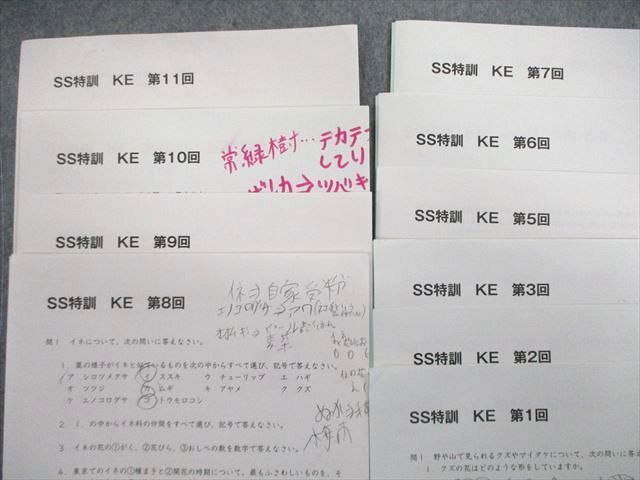 SS特訓 KE 第11回
SS特訓 KE 第10回
常緑樹…テカテ
してり
SS特訓 KE 第9回
SS特訓 KE 第8回
自家受粉
問1 イネについて、次の問いに答えなさい。
1．葉の様子がイネと似ているものを次の中からすべて選び、記号で答えなさい。
ア シロツメクサ イ ススキ ウ チューリップ エ ハギ
オ ツツジ カ ムギ キ アヤメ ク クズ
ケ エノコログサ コ トウモロコシ
2．1．の中からイネ科の仲間をすべて選び、記号で答えなさい。
3．イネの花の①がく、②花びら、③おしべの数を数字で答えなさい。
4．東京でのイネの①種まきと②開花の時期について、最もふさわしいものを、そ
梅雨
SS特訓 KE 第7回
SS特訓 KE 第6回
SS特訓 KE 第5回
SS特訓 KE 第3回
SS特訓 KE 第2回
SS特訓 KE 第1回
問1 野や山で見られるクズやマイタケについて、次の問いに答え
1．クズの花はどのような形をしていますか。